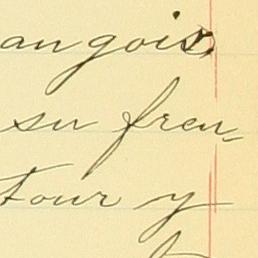 angois
su fren-
tour y